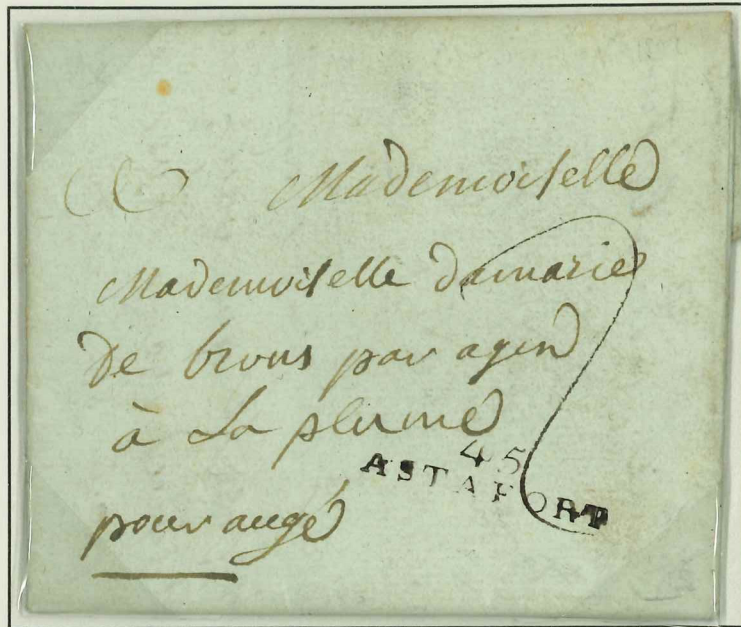 Mademoiselle
Mademoiselle damarie
De brous par agen
à La plume
45
ASTAFORT
pour augé